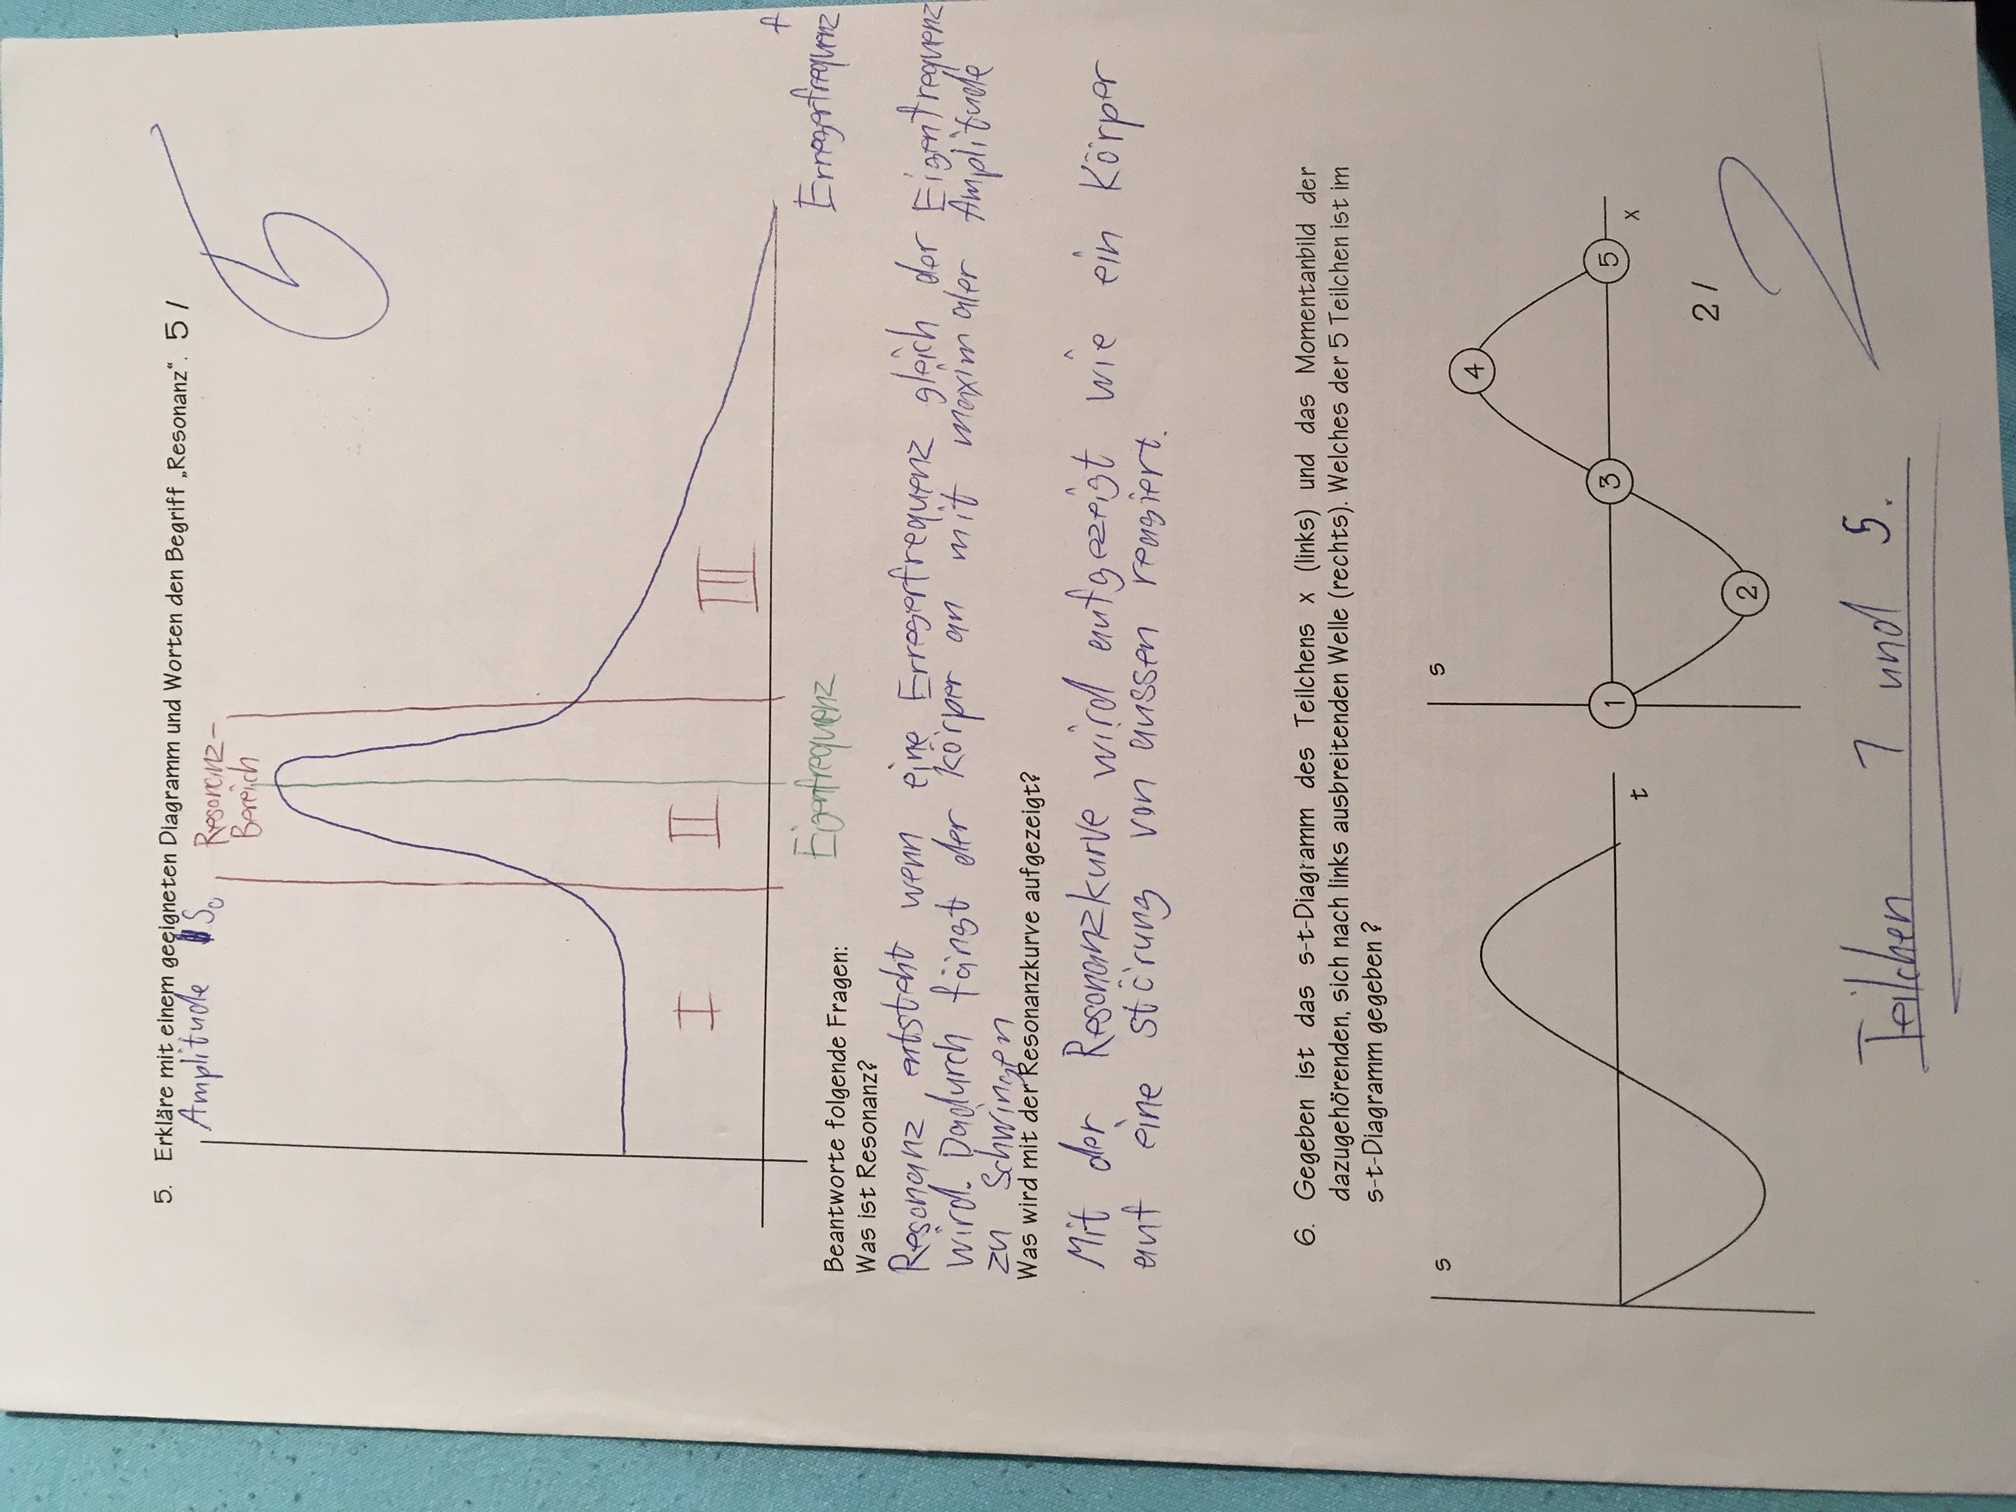 5. Erkläre mit einem geeigneten Diagramm und Worten den Begriff „Resonanz“. 5 /
5
Amplitude S₀
Resonanz-
Bereich
I
II
III
f
Eigenfrequenz
Erregerfrequenz
Beantworte folgende Fragen:
Was ist Resonanz?
Resonanz entsteht wenn eine Erregerfrequenz gleich der Eigenfrequenz
wird. Dadurch fängt der Körper an mit maximaler Amplitude
zu Schwingen
Was wird mit der Resonanzkurve aufgezeigt?
Mit der Resonanzkurve wird aufgezeigt wie ein Körper
auf eine störung von aussen reagiert.
6. Gegeben ist das s-t-Diagramm des Teilchens x (links) und das Momentanbild der
dazugehörenden, sich nach links ausbreitenden Welle (rechts). Welches der 5 Teilchen ist im
s-t-Diagramm gegeben ?
s
t
s
4
1
3
5
x
2
2 /
2
Teilchen 1 und 5.